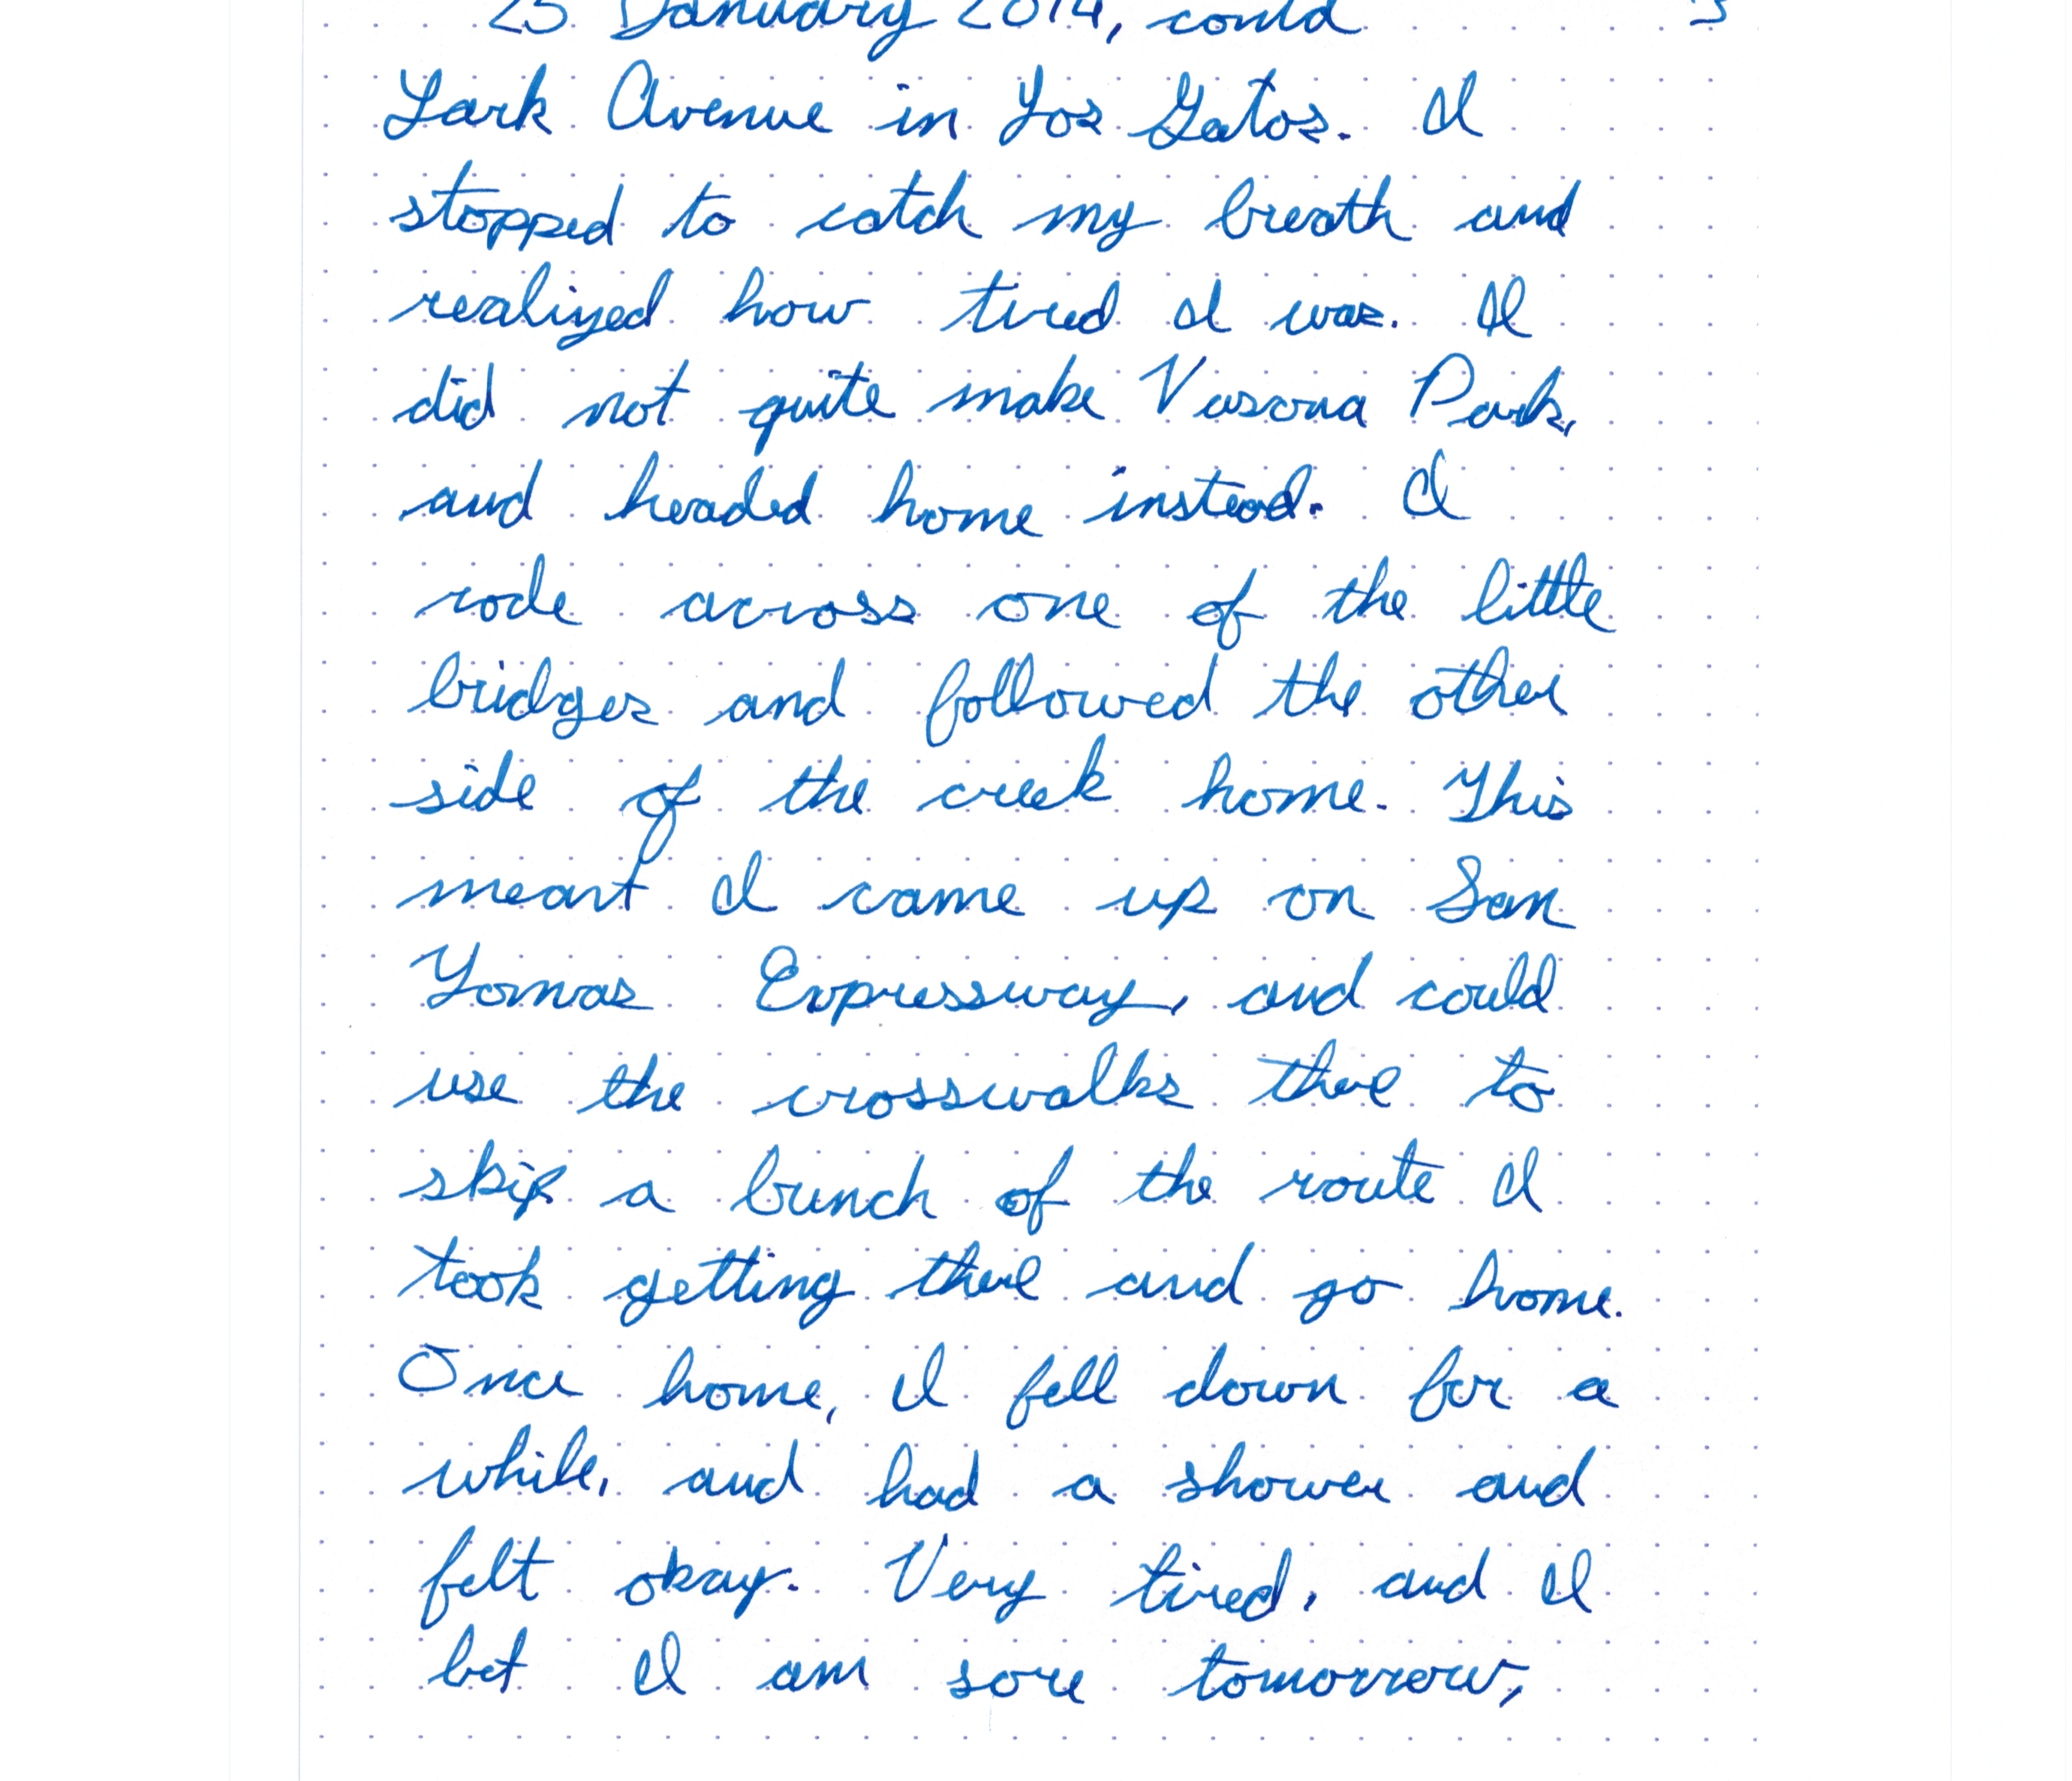 25 January 2014, could 3
Lark Avenue in Los Gatos. I
stopped to catch my breath and
realized how tired I was. I
did not quite make Vasona Park,
and headed home instead. I
rode across one of the little
bridges and followed the other
side of the creek home. This
meant I came up on San
Tomas Expressway, and could
use the crosswalks there to
skip a bunch of the route I
took getting there and go home.
Once home, I fell down for a
while, and had a shower and
felt okay. Very tired, and I
bet I am sore tomorrow,